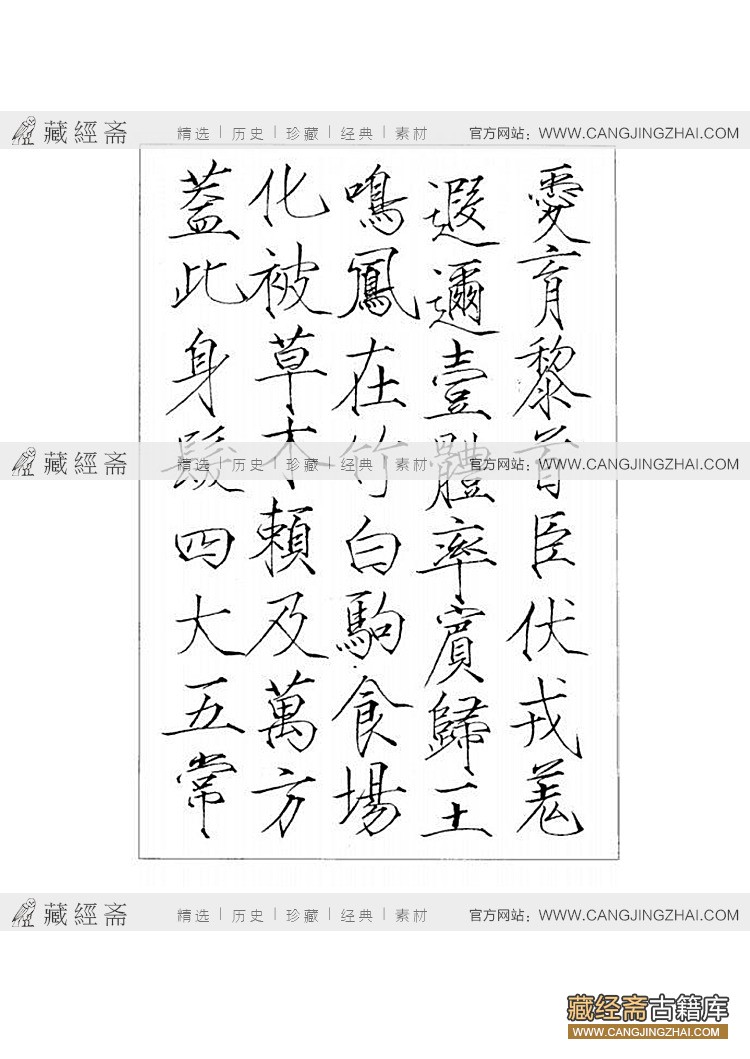 藏經斋 精选 | 历史 | 珍藏 | 经典 | 素材 官方网站：WWW.CANGJINGZHAI.COM
愛育黎首臣伏戎羌
遐邇壹體率賓歸王
鳴鳳在竹白駒食場
化被草木賴及萬方
蓋此身髮四大五常
藏經斋 精选 | 历史 | 珍藏 | 经典 | 素材 官方网站：WWW.CANGJINGZHAI.COM
藏經斋 精选 | 历史 | 珍藏 | 经典 | 素材 官方网站：WWW.CANGJINGZHAI.COM
藏经斋古籍库
WWW.CANGJINGZHAI.COM